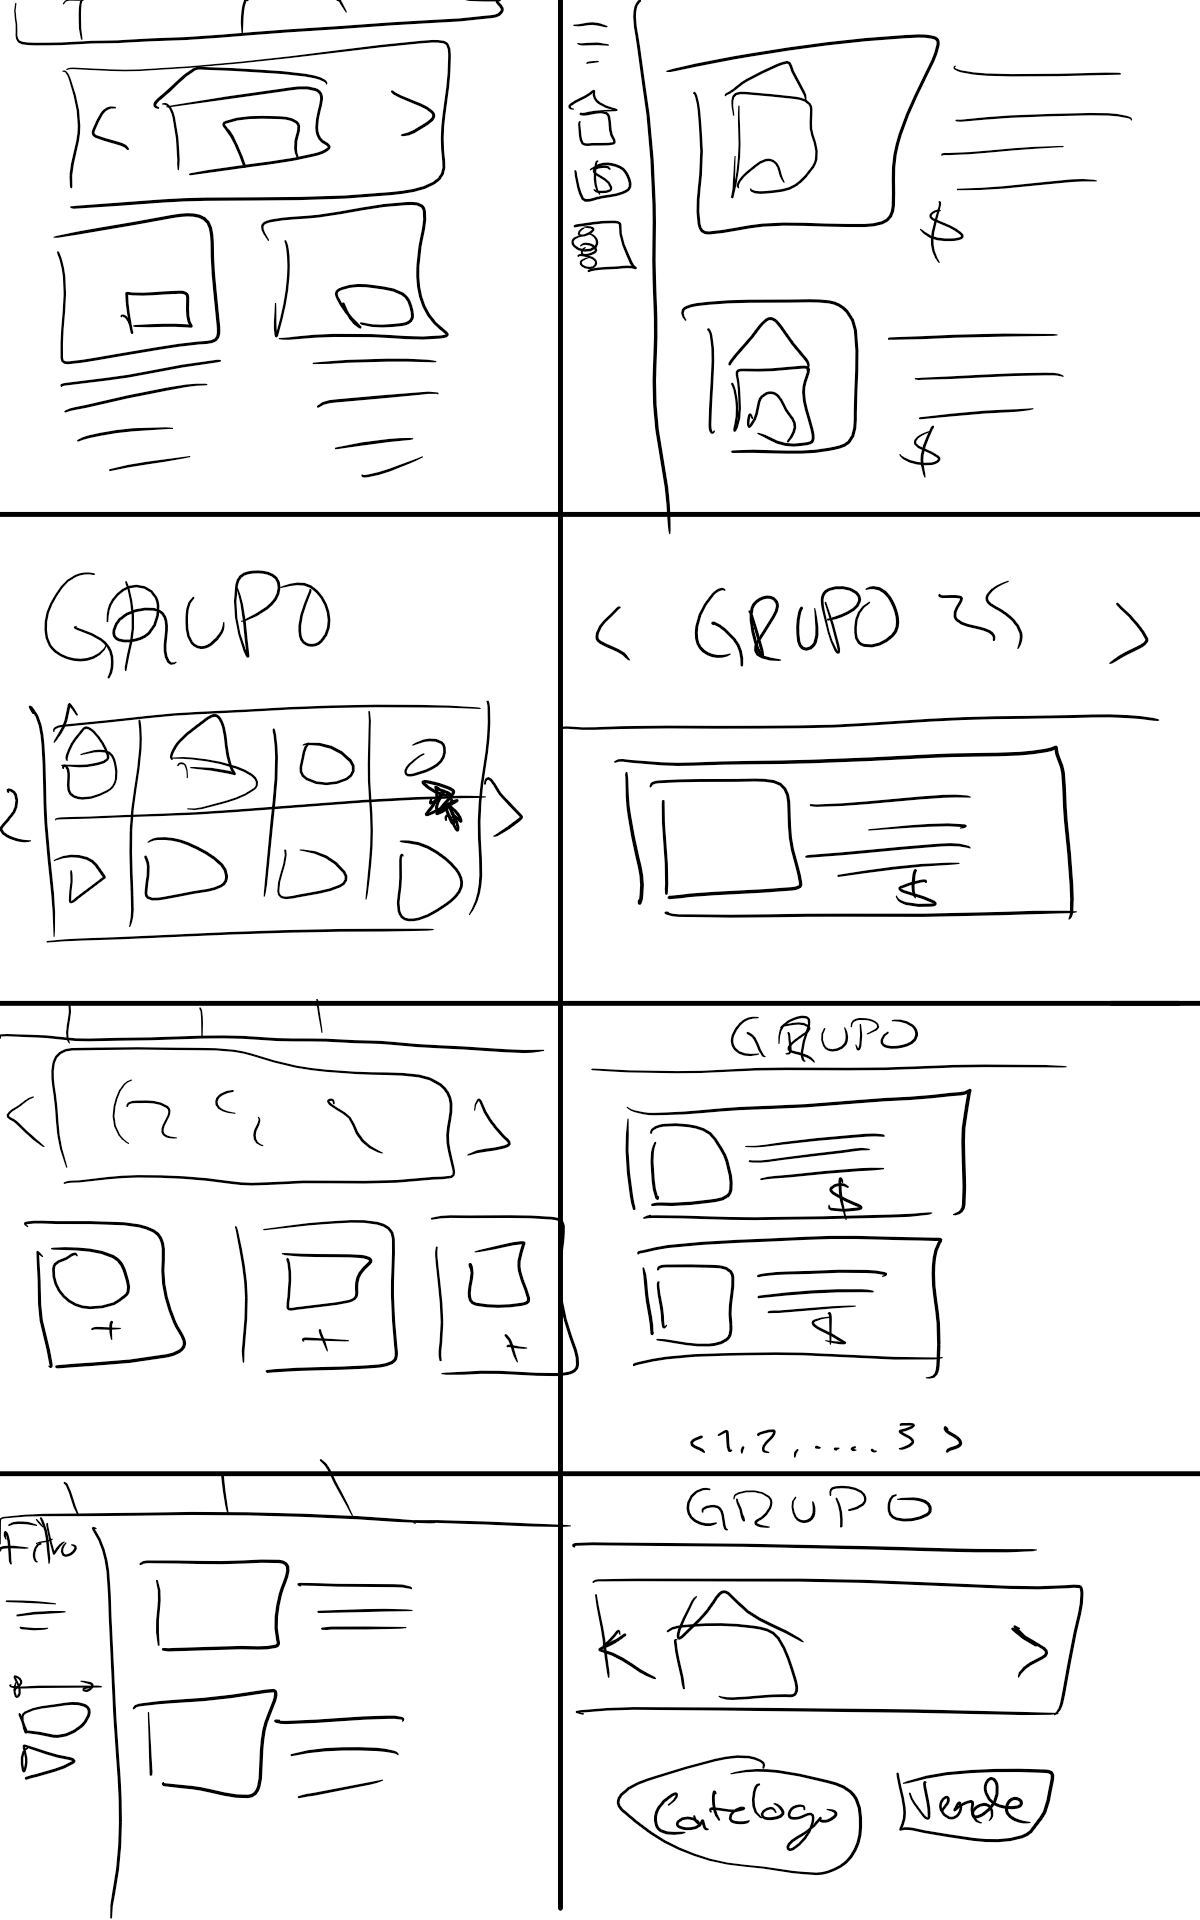 $
$
GRUPO
< GRUPO 25 >
$
GRUPO
$
$
<1,2,.....3>
Filtro
GRUPO
Catalogo
Vende